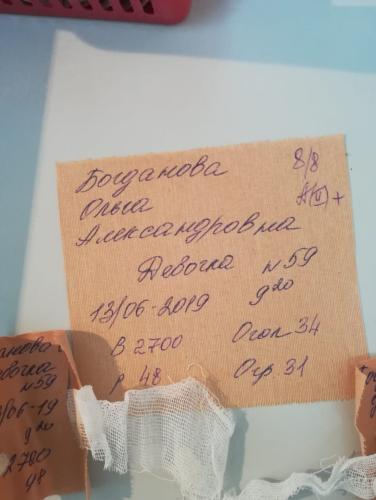 Богданова 8/8
Ольга A(II)+
Александровна
Девочка N59
13/06-2019 9 20
В 2700 Огол 34
Р 48 Огр 31
анова
девочка
N59
/06-19
9 20
2700
48